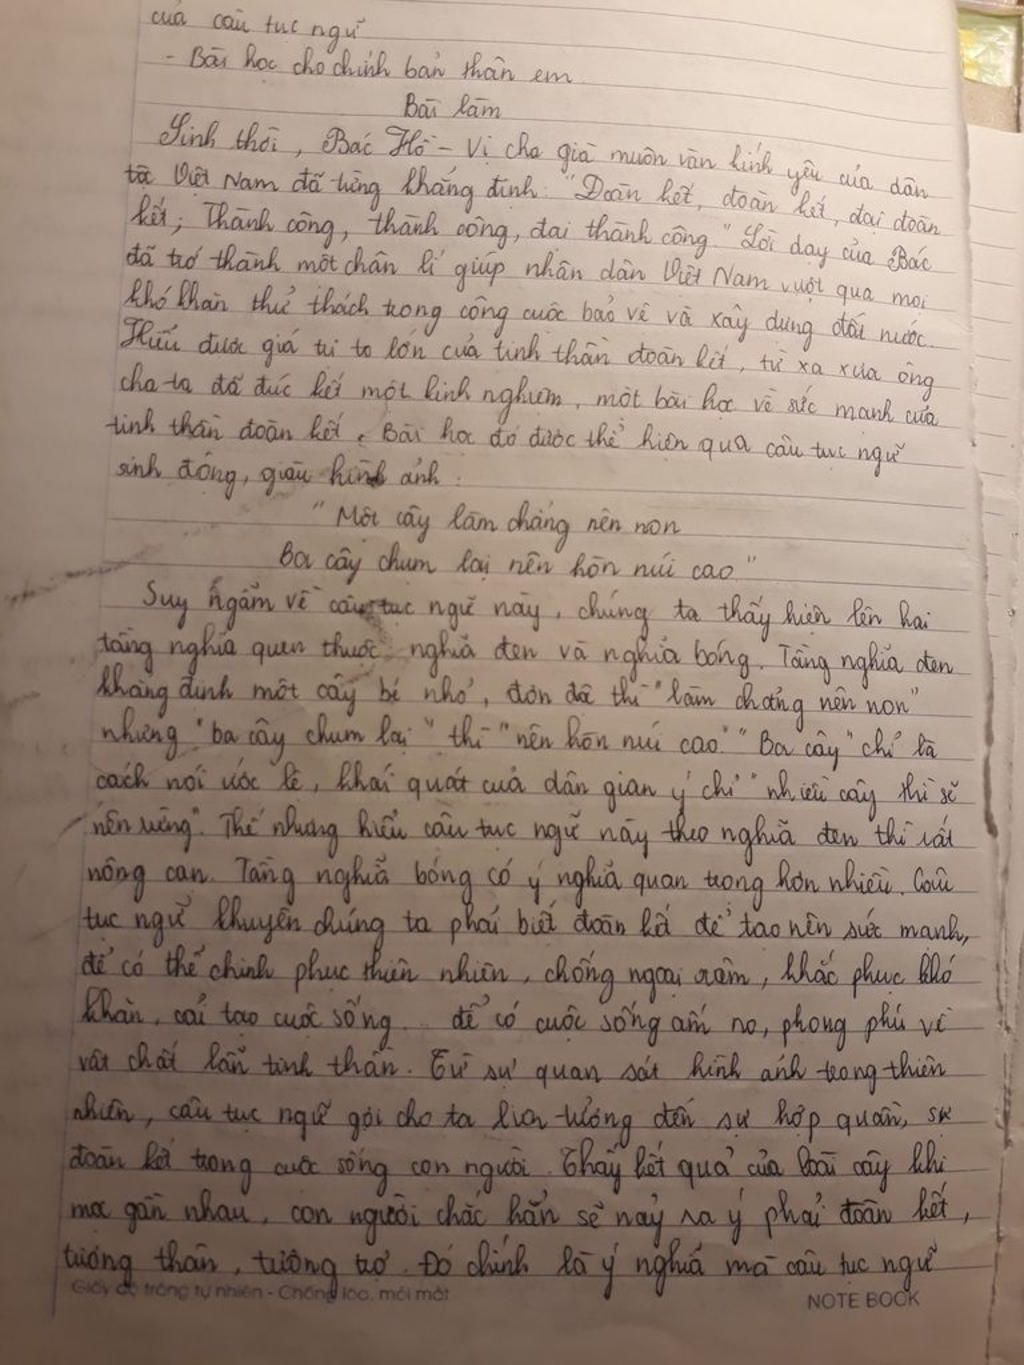 của câu tục ngữ
- Bài học cho chính bản thân em
Bài làm
Sinh thời, Bác Hồ - Vị cha già muôn vàn kính yêu của dân
tộc Việt Nam đã từng khẳng định: "Đoàn kết, đoàn kết, đại đoàn
kết; Thành công, thành công, đại thành công." Lời dạy của Bác
đã trở thành một chân lí giúp nhân dân Việt Nam vượt qua mọi
khó khăn thử thách trong công cuộc bảo vệ và xây dựng đất nước.
Hiểu được giá trị to lớn của tinh thần đoàn kết, từ xa xưa ông
cha ta đã đúc kết một kinh nghiệm, một bài học về sức mạnh của
tinh thần đoàn kết. Bài học đó được thể hiện qua câu tục ngữ
sinh động, giàu hình ảnh:
"Một cây làm chẳng nên non
Ba cây chụm lại nên hòn núi cao"
Suy ngẫm về câu tục ngữ này, chúng ta thấy hiện lên hai
tầng nghĩa quen thuộc: nghĩa đen và nghĩa bóng. Tầng nghĩa đen
khẳng định một cây bé nhỏ, đơn độc thì "làm chẳng nên non"
nhưng "ba cây chụm lại" thì "nên hòn núi cao." "Ba cây" chỉ là
cách nói ước lệ, khái quát của dân gian ý chỉ "nhiều cây thì sẽ
nên rừng". Thế nhưng hiểu câu tục ngữ này theo nghĩa đen thì rất
nông cạn. Tầng nghĩa bóng có ý nghĩa quan trọng hơn nhiều. Câu
tục ngữ khuyên chúng ta phải biết đoàn kết để tạo nên sức mạnh,
để có thể chinh phục thiên nhiên, chống ngoại xâm, khắc phục khó
khăn, cải tạo cuộc sống... để có cuộc sống ấm no, phong phú về
vật chất lẫn tinh thần. Từ sự quan sát hình ảnh trong thiên
nhiên, câu tục ngữ gợi cho ta liên tưởng đến sự hợp quần, sự
đoàn kết trong cuộc sống con người. Thấy kết quả của loài cây khi
mọc gần nhau, con người chắc hẳn sẽ nảy ra ý phải đoàn kết,
tương thân, tương trợ. Đó chính là ý nghĩa mà câu tục ngữ
Giấy độ trắng tự nhiên - Chống lóa, mỏi mắt
NOTE BOOK